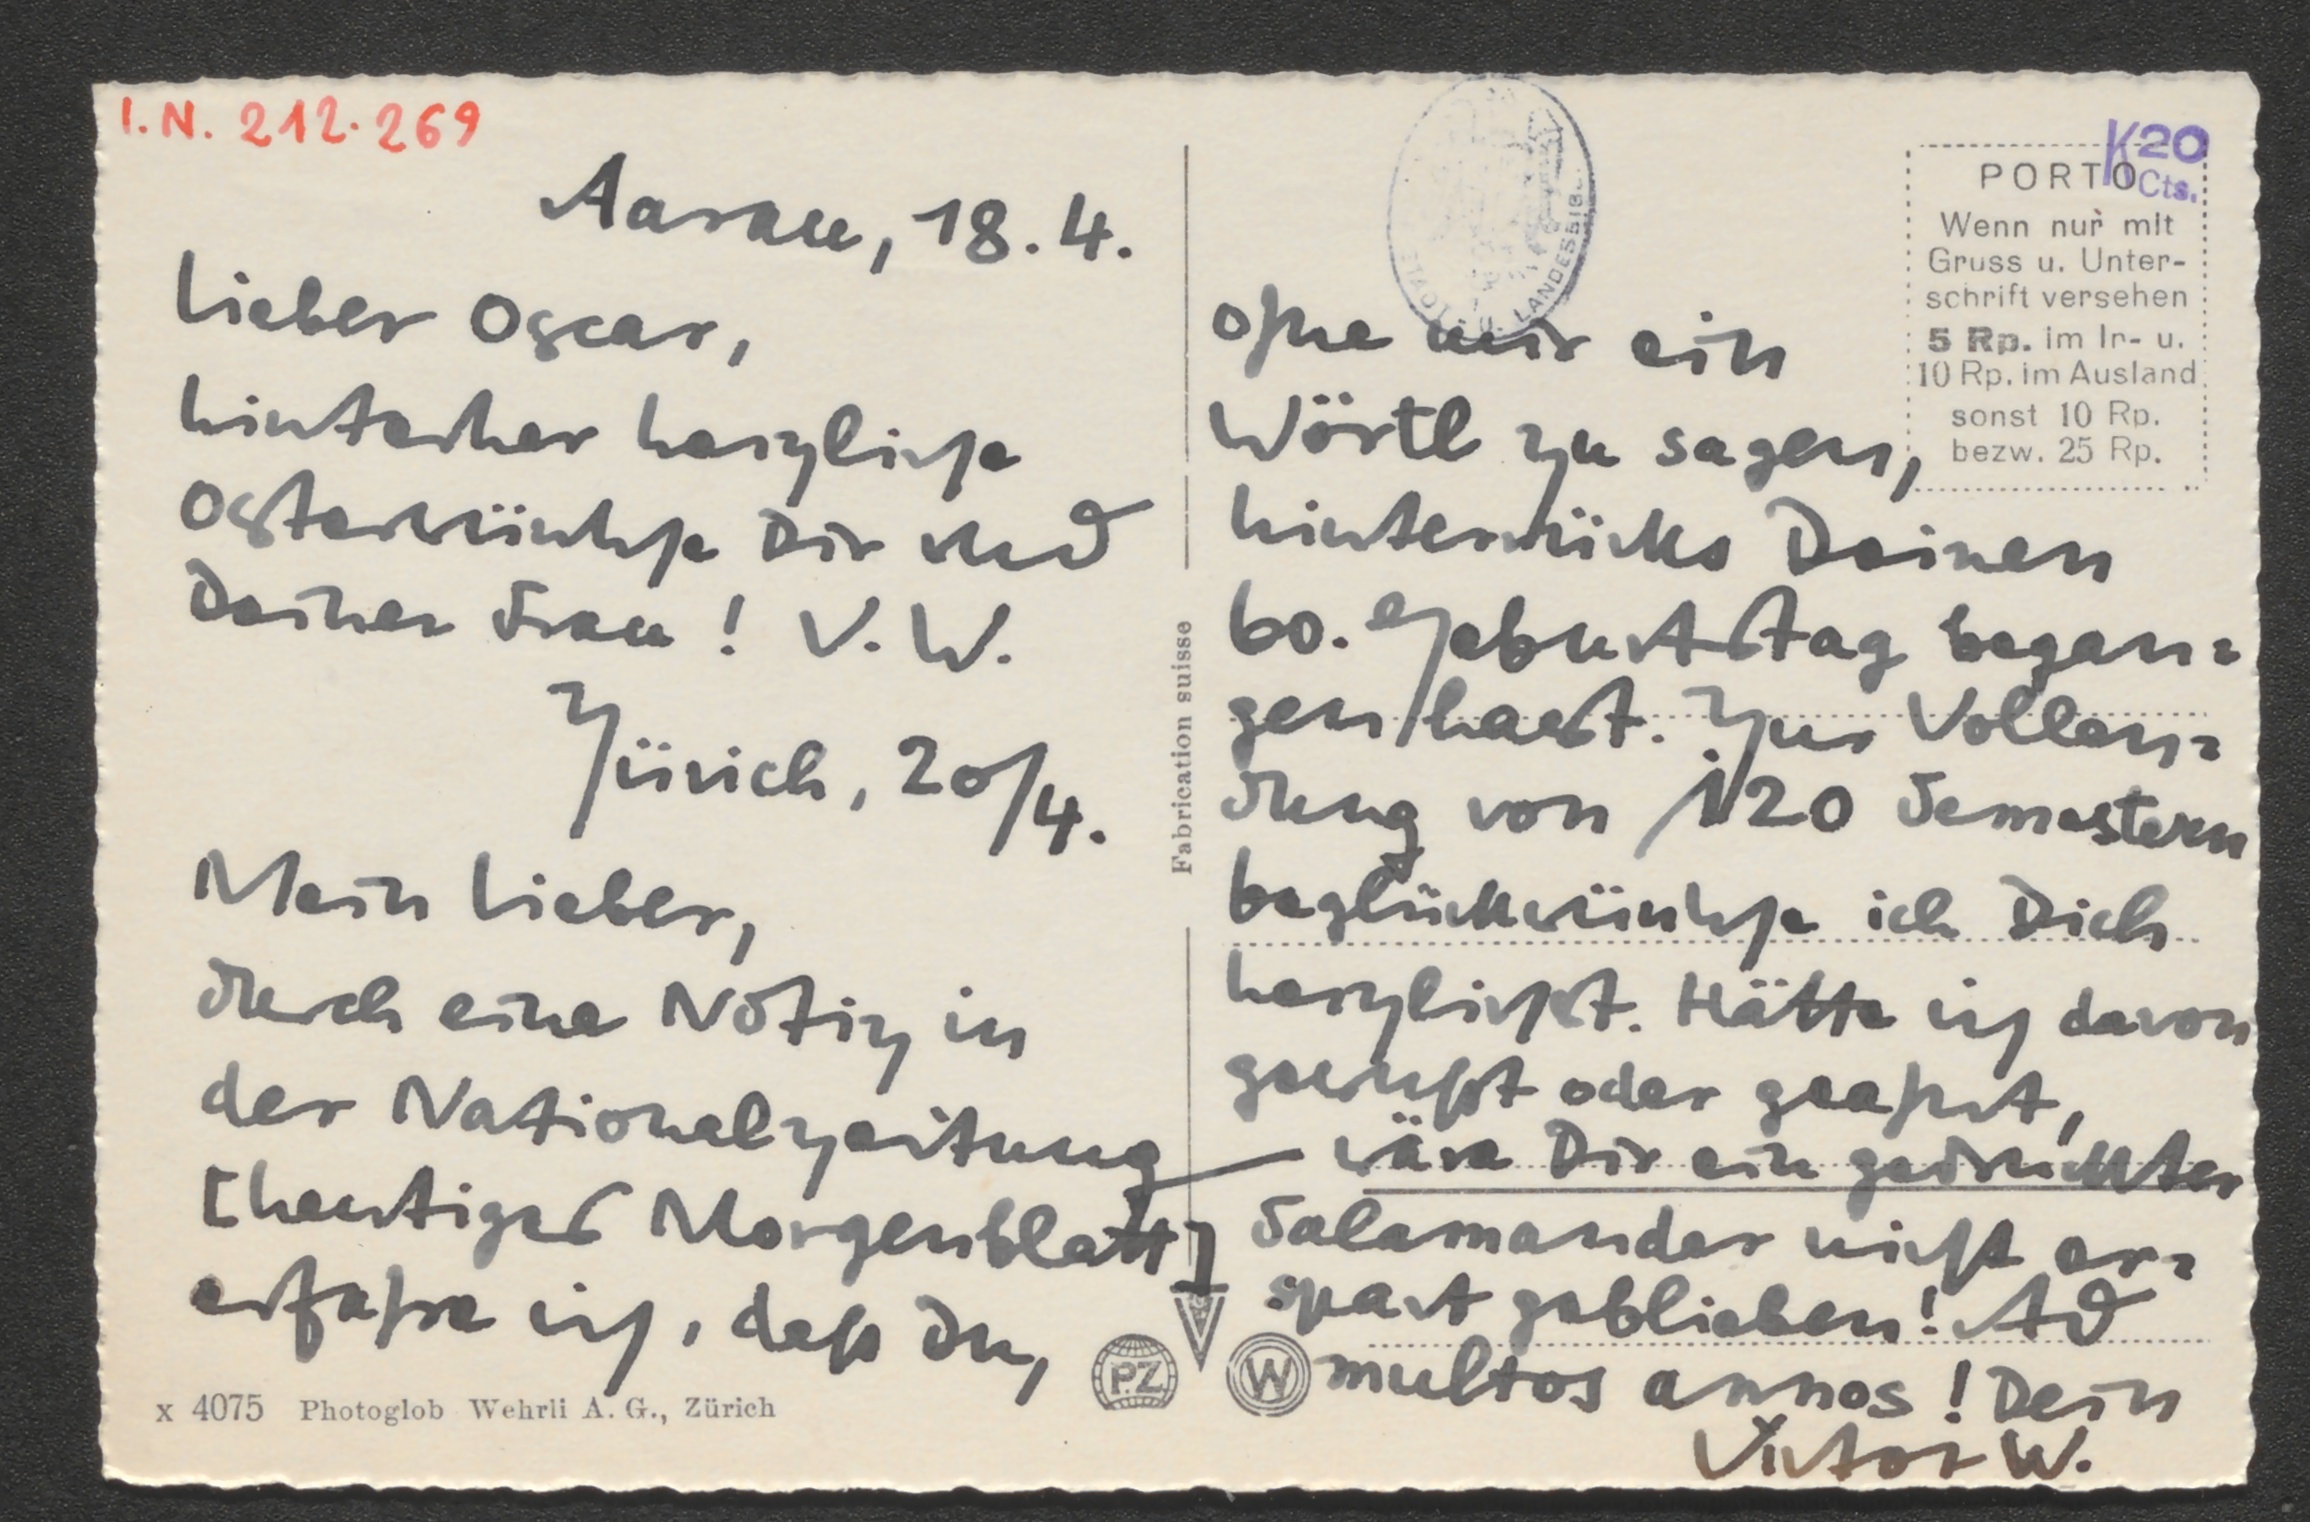 I.N. 212.269
Aarau, 18.4.
Lieber Oscar,
hinterher herzliche
Osterwünsche Dir und
Deiner Frau! V. W.
Zürich, 20/4.
Mein Lieber,
durch eine Notiz in
der Nationalzeitung
[heutiges Morgenblatt]
erfahre ich, daß Du,
x 4075 Photoglob Wehrli A. G., Zürich
Fabrication suisse
P.Z.
W
LANDESBIB
K20
Cts.
PORTO
Wenn nur mit
Gruss u. Unter-
schrift versehen
5 Rp. im In- u.
10 Rp. im Ausland
sonst 10 Rp.
bezw. 25 Rp.
ohne mir ein
Wörtl zu sagen,
hinterrücks Deinen
60. Geburtstag began=
gen hast. Zur Vollen=
dung von 120 Semestern
beglückwünsche ich Dich
herzlichst. Hätte ich davon
gewußt oder geahnt,
wäre Dir ein gedruckter
Salamander nicht er=
spart geblieben! Ad
multos annos! Dein
Victor W.